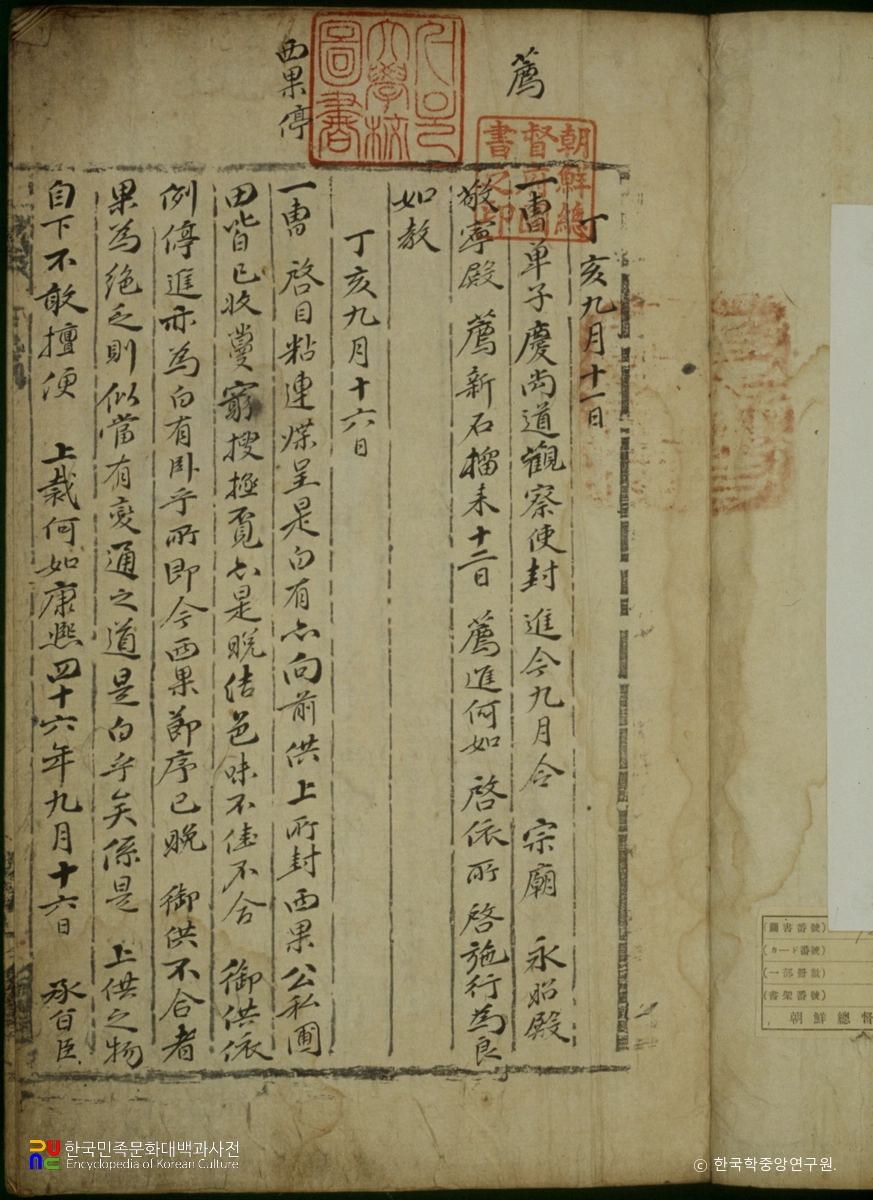 薦
丁亥九月十一日
一曹單子慶尙道觀察使封進今九月令 宗廟 永昭殿
敬寧殿 薦新石榴來十二日 薦進何如 啓依所 啓施行爲良
如敎
西果停
丁亥九月十六日
一曹 啓目粘連牒呈是白有亦向前供上所封西果公私圃
田皆已收蔓窮搜極覓亦是晩結色味不佳不合 御供依
例停進亦爲白有臥乎所卽今西果節序已晩 御供不合者
果爲絶乏則似當有變通之道是白乎矣係是 上供之物
自下不敢擅便 上裁何如康熙四十六年九月十六日 承旨臣
朝鮮總
督府圖
書之印
大學校
圖書
(圖書番號)
(カード番號)
(一部冊數)
(書架番號)
朝鮮總督
한국민족문화대백과사전
Encyclopedia of Korean Culture
ⓒ 한국학중앙연구원.